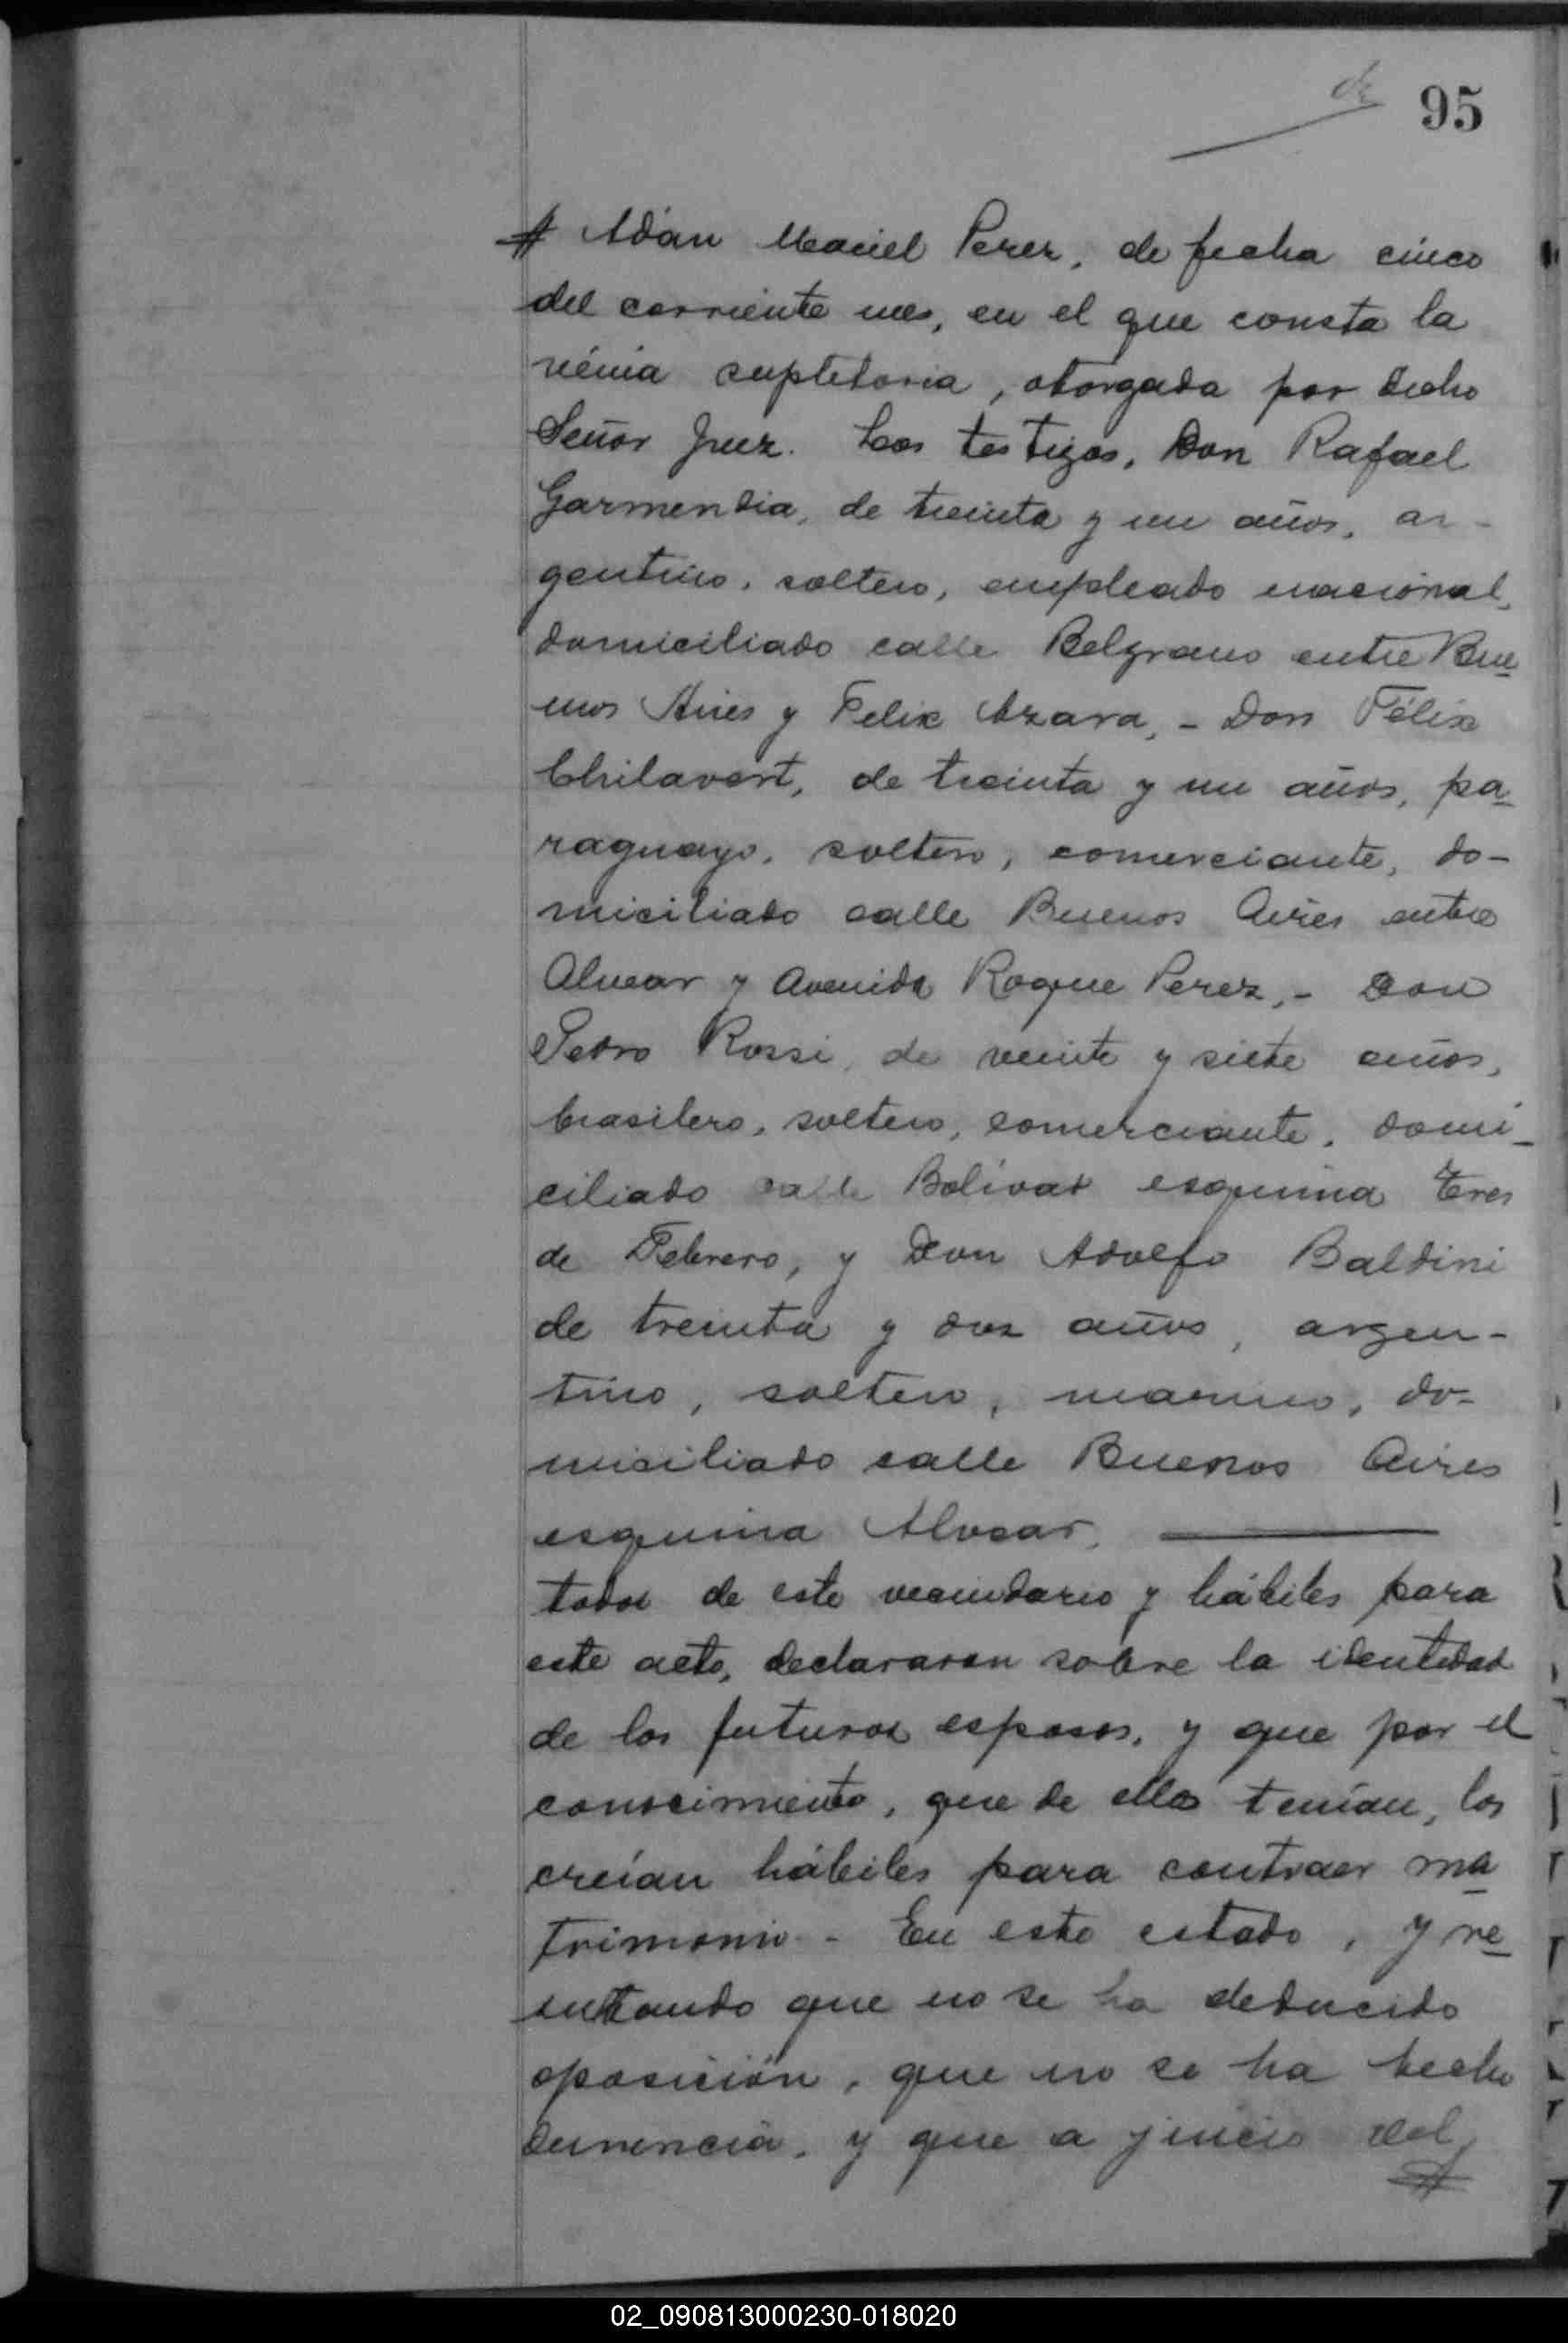 95
# Adán Maciel Perez, de fecha cinco
del corriente mes, en el que consta la
vénia supletoria, otorgada por dicho
Señor Juez. Los testigos, Don Rafael
Garmendia, de treinta y un años, ar-
gentino, soltero, empleado nacional,
domiciliado calle Belgrano entre Bue
nos Aires y Felix Azara, - Don Félix
Chilavert, de treinta y un años, pa
raguayo, soltero, comerciante, do-
miciliado calle Buenos Aires entre
Alvear y Avenida Roque Perez, - Don
Pedro Rossi, de veinte y siete años,
brasilero, soltero, comerciante, domi-
ciliado calle Bolívar esquina Tres
de Febrero, y Don Adolfo Baldini
de treinta y dos años, argen-
tino, soltero, marino, do-
miciliado calle Buenos Aires
esquina Alvear.
todos de este vecindario y hábiles para
este acto, declararon sobre la identidad
de los futuros esposos, y que por el
conocimiento, que de ellos tenían, los
creían hábiles para contraer ma
trimonio. - En este estado, y re
sultando que no se ha deducido
oposición, que no se ha hecho
denuncia, y que a juicio del
#
02_090813000230-018020